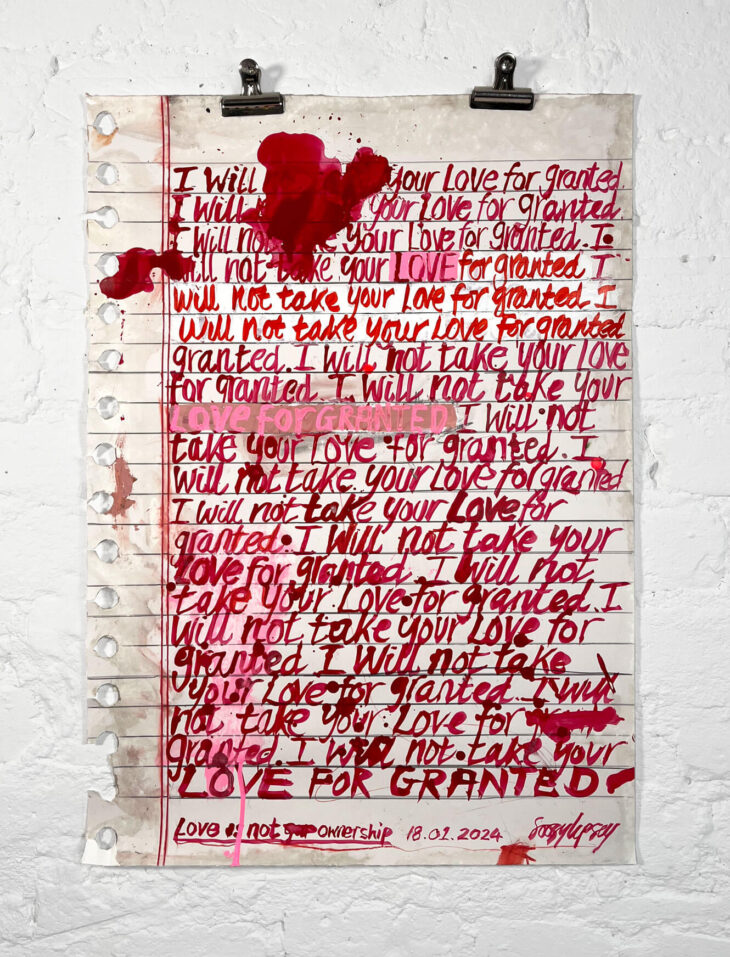 I Will your Love for granted.
I Will your Love for granted.
I Will not take your Love for granted. I
will not take your LOVE for granted I
will not take your Love for granted. I
Will not take your Love for granted
granted. I Will not take your Love
for granted. I Will not take your
LOVE for GRANTED I Will not
take your Love for granted. I
will not take your Love for granted
I will not take your Love for
granted. I Will not take your
Love for granted. I Will not
take your Love for granted. I
will not take your Love for
granted I Will not take
your Love for granted. I Will
not take your Love for
granted. I Will not take your
LOVE FOR GRANTED
Love is not ownership 18.01.2024